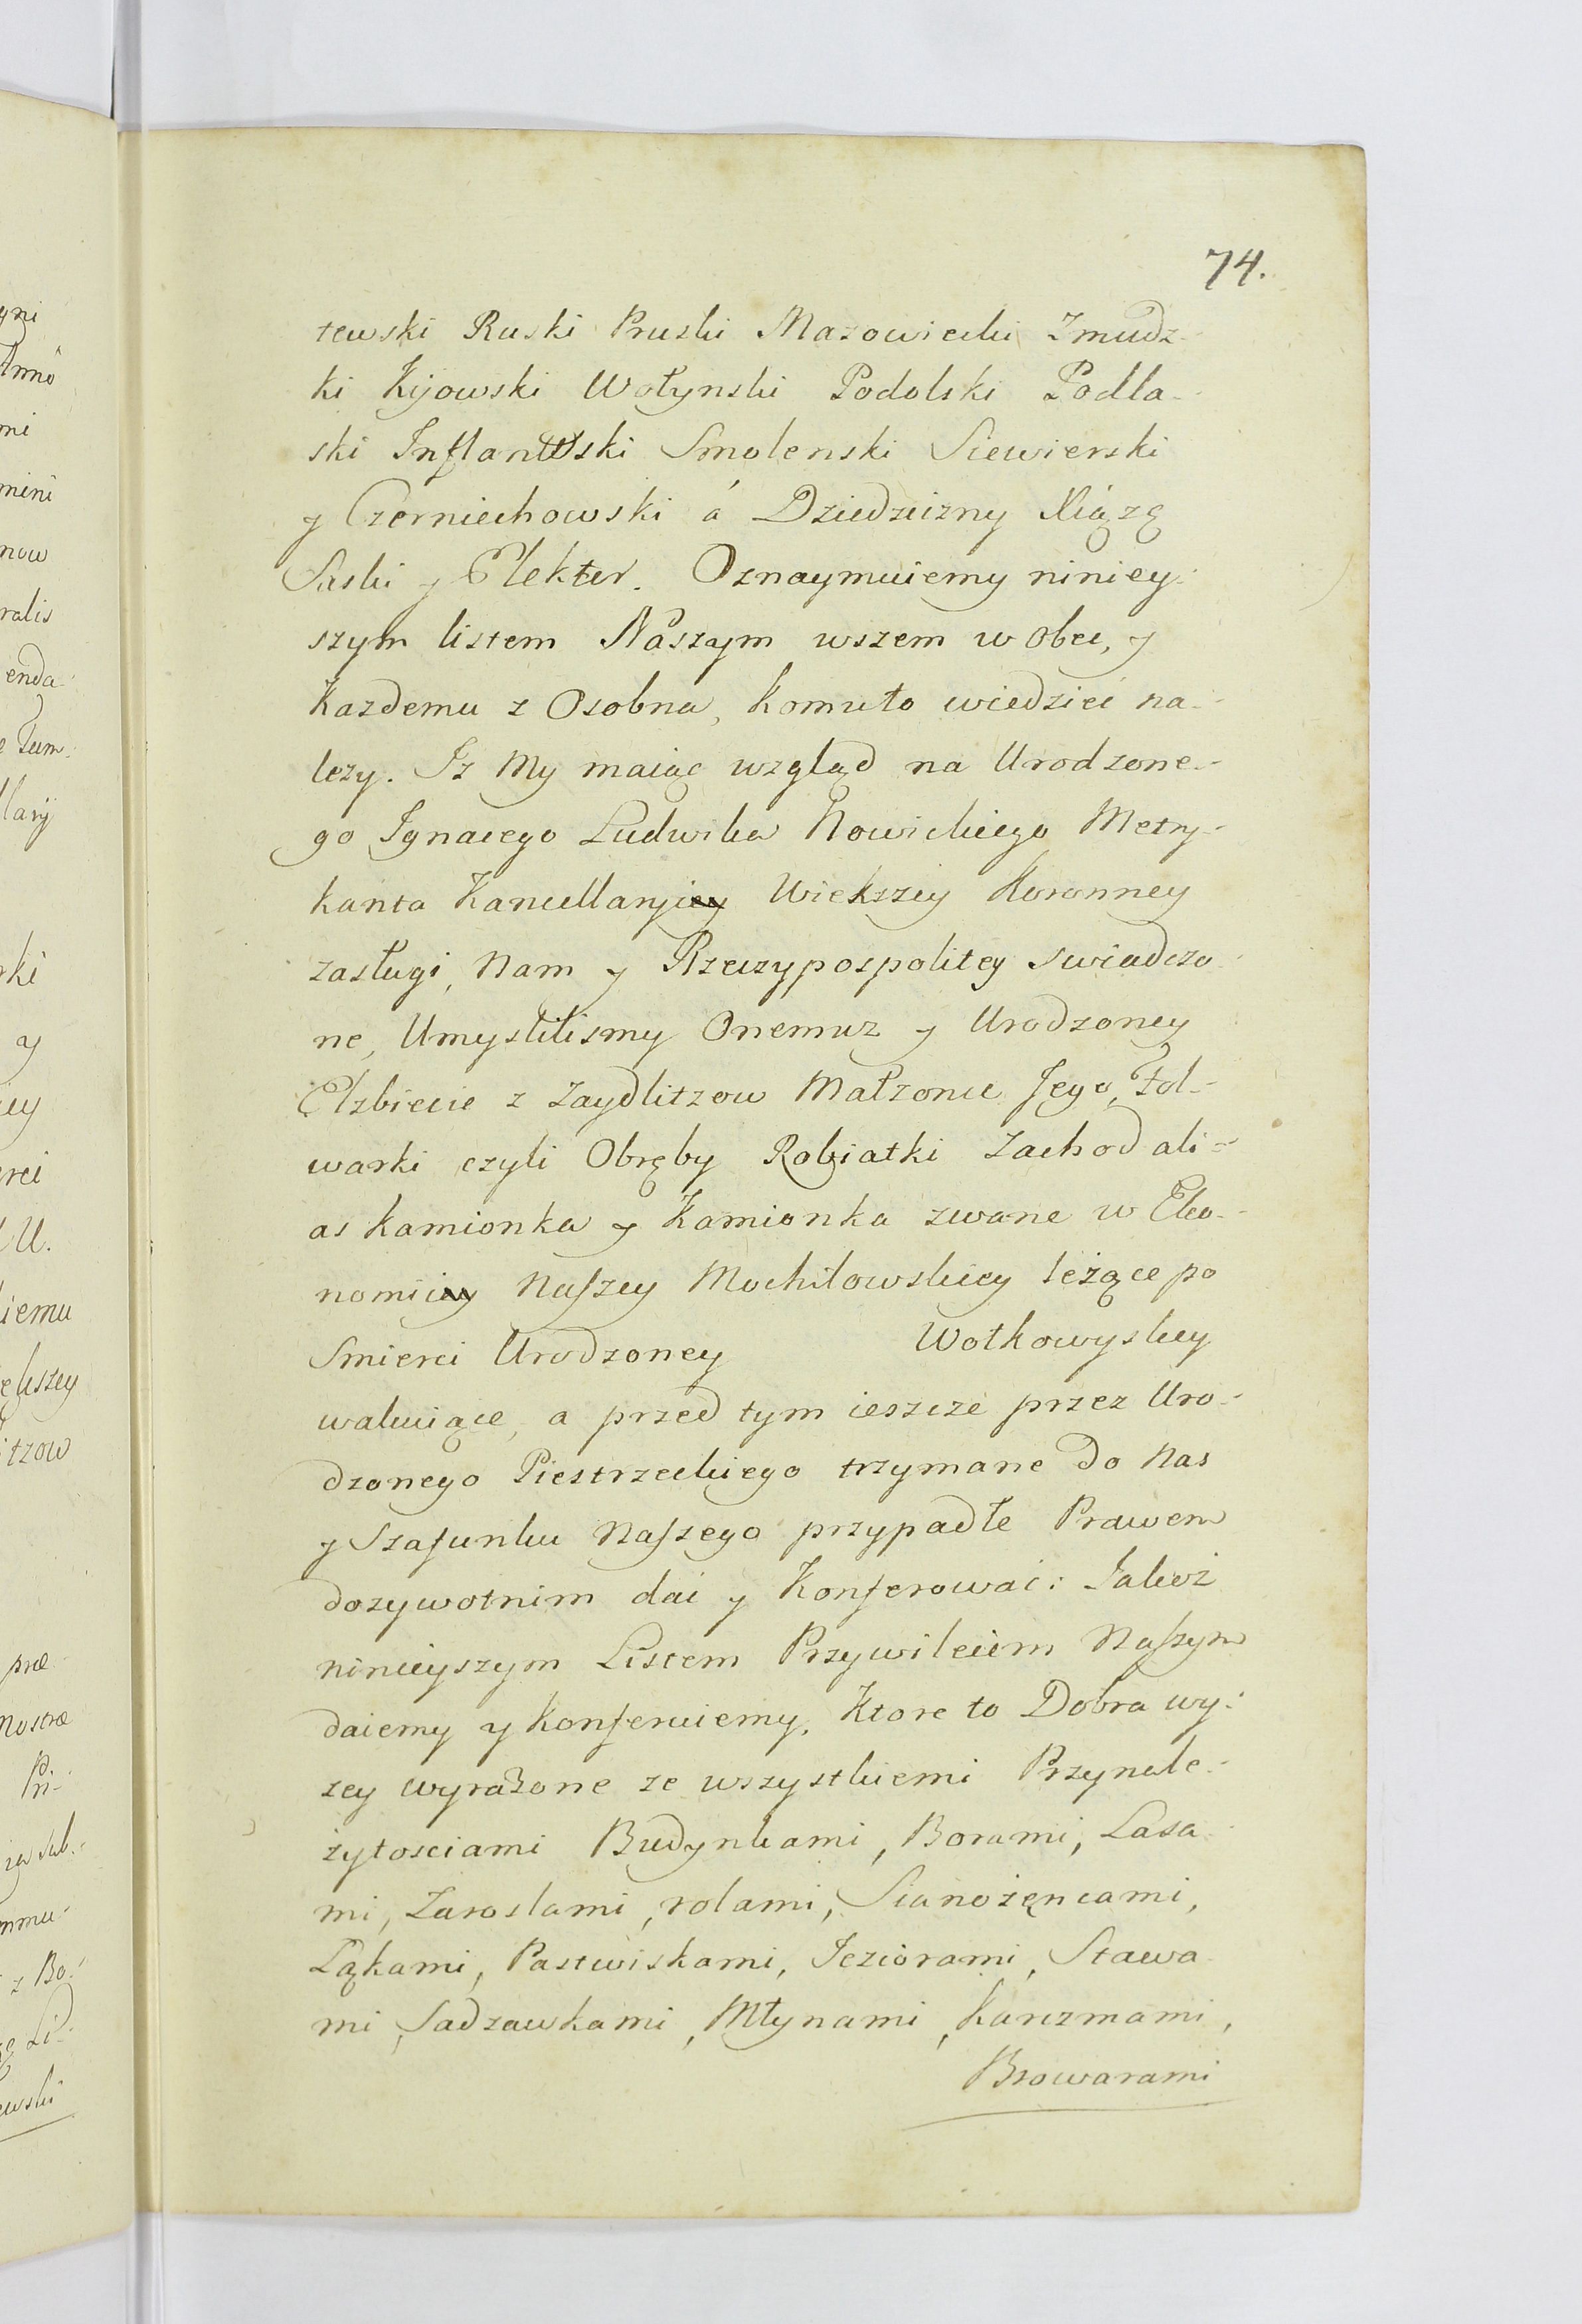 74.
tewski Ruski Pruski Mazowiecki Zmudz-
ki Kijowski Wołynski Podolski Podla-
ski Inflantski Smolenski Siewierski
y Czerniechowski á Dziedziczny Xiążę
Saski y Elektor. Oznaymuiemy niniey:
szym listem Naszym wszem w obec, y
Kazdemu z Osobna, komuto wiedzieć na-
lezy. Iz My maiąc wzgląd na Urodzone-
go Ignacego Ludwika Nowickiego Metry-
kanta Kancellaryiey Wiekszey Koronney
zasługi, Nam y Rzeczypospolitey swiadczo
ne, Umyslilismy Onemuz y Urodzoney
Elzbiecie z Zaydlitzow Małzonce Jego, Fol-
warki czyli Obręby Robiatki Zachod ali-
as Kamionka y Kamionka zwane w Eko-
nomiiey Naszey Mochilowskiey leżące po
Smierci Urodzoney Wołkowyskiey
wakuiące, a przed tym ieszcze przez Uro-
dzonego Piestrzeckiego trzymane do Nas
y Szafunku Naszego przypadłe Prawem
dozywotnim dać y Konferować: Jakoż
ninieyszym Listem Przywileiem Naszym
daiemy y konferuiemy. Ktore to Dobra wy:
zey wyrażone ze wszystkiemi Przynale-
żytosciami Budynkami, Borami, Lasa
mi, Zaroslami, rolami, Sianożęncami,
Ląkami, Pastwiskami, Jeziorami, Stawa
mi, Sadzawkami, Młynami, Karczmami,
Browarami
yni
Anno
mi
mini
now
ralis
enda
rki
y
U.
iemu
itzow
præ
Nostræ
z Bo:
Li-
ewski